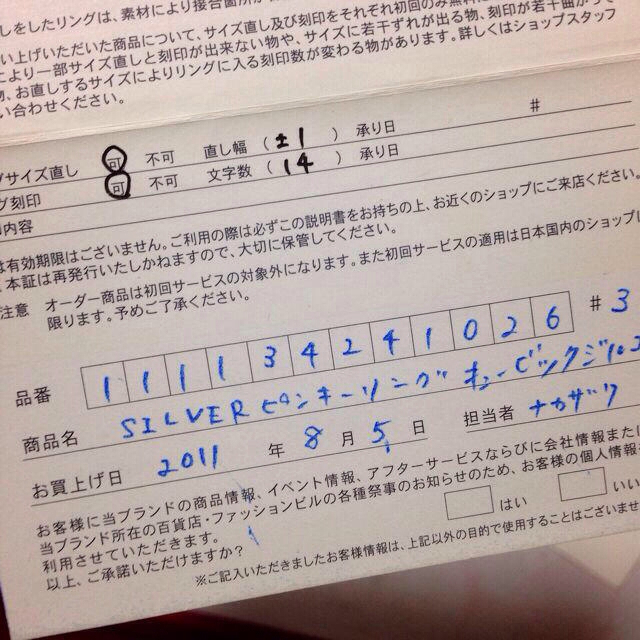 しをしたリングは、素材により接合箇所が
い上げいただいた商品について、サイズ直し及び刻印をそれぞれ初回のみ無料に
により一部サイズ直しと刻印が出来ない物や、サイズに若干ずれが出る物、刻印が若干曲がって
物、お直しするサイズによりリングに入る刻印数が変わる物があります。詳しくはショップスタッフ
い合わせください。
グサイズ直し 可 不可 直し幅 ( ±1 ) 承り日 #
グ刻印 可 不可 文字数 ( 14 ) 承り日
内容
は有効期限はございません。ご利用の際は必ずこの説明書をお持ちの上、お近くのショップにご来店ください。
本証は再発行いたしかねますので、大切に保管してください。
注意 オーダー商品は初回サービスの対象外になります。また初回サービスの適用は日本国内のショップに
限ります。予めご了承ください。
品番 111134241026 #3
商品名 SILVER ピンキーリング キュービックジルコ
お買上げ日 2011 年 8 月 5 日 担当者 ナカザワ
お客様に当ブランドの商品情報、イベント情報、アフターサービスならびに会社情報または
当ブランド所在の百貨店・ファッションビルの各種祭事のお知らせのため、お客様の個人情報を
利用させていただきます。
以上、ご承諾いただけますか? はい いい
※ご記入いただきましたお客様情報は、上記以外の目的で使用することはございませ